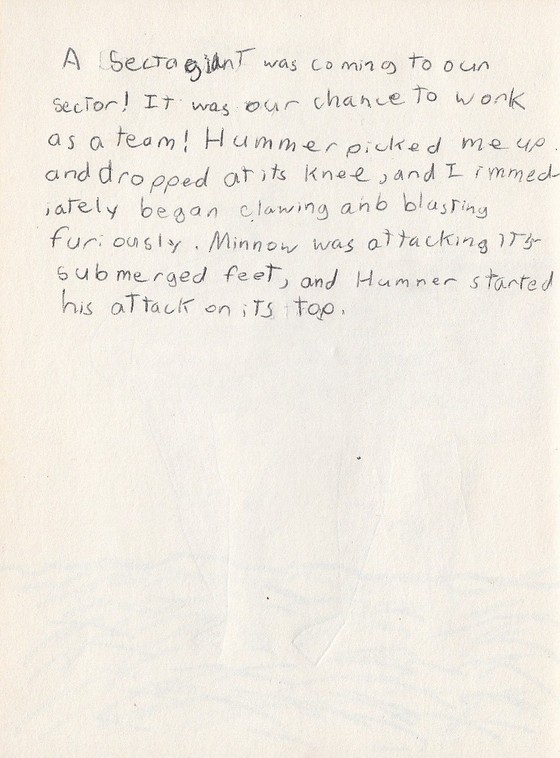 A Sectagiant was coming to our
sector! It was our chance to work
as a team! Hummer picked me up.
and dropped at its knee, and I immed-
iately began clawing anb blasting
furiously. Minnow was attacking its
submerged feet, and Humner started
his attack on its top.